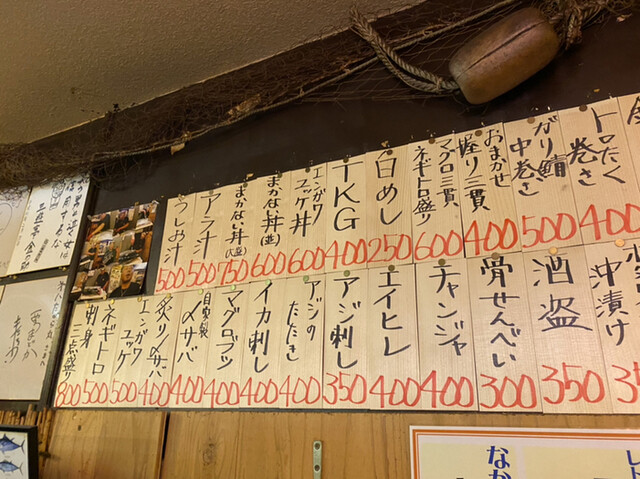 トロたく
巻き
400
ガリ鯖
中巻き
500
おまかせ
握り三貫
400
マグロ三貫
ネギトロ盛り
600
白めし
250
TKG
400
エンガワ
ユッケ丼
600
まかない丼(並)
600
750
アラ汁
500
うしお汁
500
沖漬け
酒盗
350
骨せんべい
300
チャンジャ
400
エイヒレ
400
アジ刺し
350
アジの
たたき
400
イカ刺し
400
マグロブツ
400
自家製
〆サバ
400
炙り〆サバ
400
エンガワ
ユッケ
500
ネギトロ
500
刺身
三点盛り
800
なか